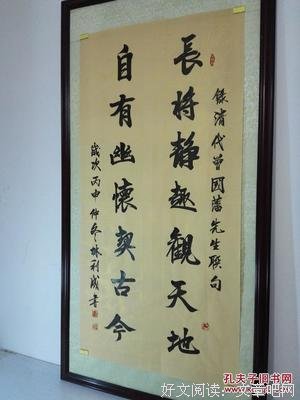 錄清代曾國藩先生联句
長將静趣觀天地
自有幽懷契古今
歲次丙申仲冬林利成書
孔夫子旧书网
好文阅读：文章吧网